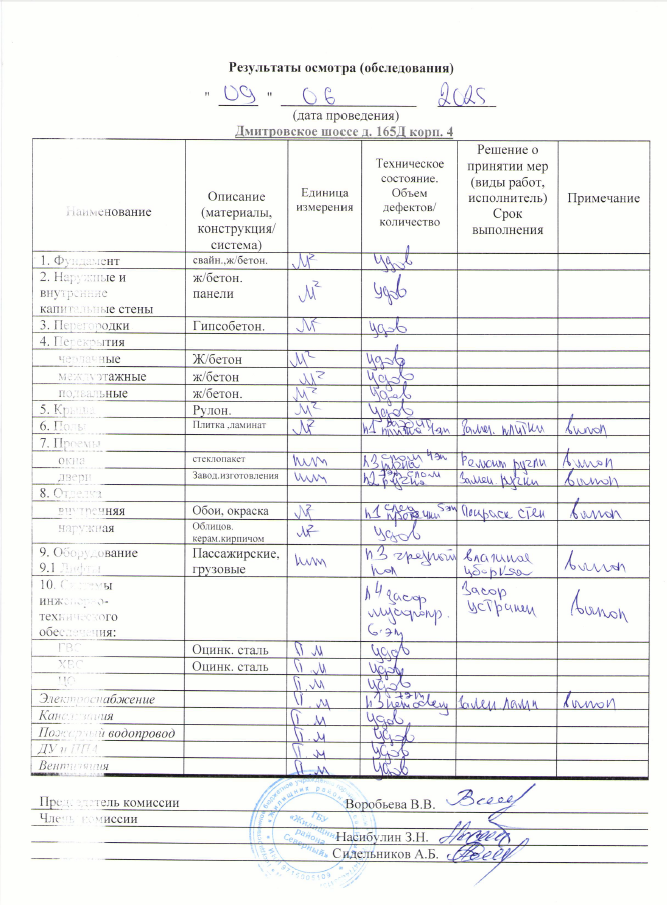 Результаты осмотра (обследования)
" 09 " 06 2025
(дата проведения)
Дмитровское шоссе д. 165Д корп. 4
Наименование
Описание
(материалы,
конструкция/
система)
Единица
измерения
Техническое
состояние.
Объем
дефектов/
количество
Решение о
принятии мер
(виды работ,
исполнитель)
Срок
выполнения
Примечание
1. Фундамент свайн.,ж/бетон. м² удов
2. Наружные и
внутренние
капитальные стены
ж/бетон.
панели
м² удов
3. Перегородки Гипсобетон. м² удов
4. Перекрытия
чердачные Ж/бетон м² удов
междуэтажные ж/бетон м² удов
подвальные ж/бетон. м² удов
5. Крыша Рулон. м² удов
6. Полы Плитка ,ламинат м² п1 плитка 4эт Замен. плитки выпол
7. Проемы
окна стеклопакет шт п3 слом 4эт Ремонт ручки выпол
двери Завод.изготовления шт п2 слом ручка Замен ручки выпол
8. Отделка
внутренняя Обои, окраска м² п1 5эт Покраск стен выпол
наружная Облицов.
керам.кирпичом
м² удов
9. Оборудование
9.1 Лифты
Пассажирские,
грузовые
шт п3 грязный
пол
влажная
уборка
выпол
10. Системы
инженерно-
технического
обеспечения:
п4 засор
мусоропр.
6 эт
Засор
устранен
выпол
ГВС Оцинк. сталь п.м удов
ХВС Оцинк. сталь п.м удов
ЦО п.м удов
Электроснабжение п.м п3 7эт Замен ламп выпол
Канализация п.м удов
Пожарный водопровод п.м удов
ДУ и ППА п.м удов
Вентиляция п.м удов
Председатель комиссии Воробьева В.В.
Члены комиссии
Насибулин З.Н.
Сидельников А.Б.
ГБУ
«Жилищник
района
Северный»